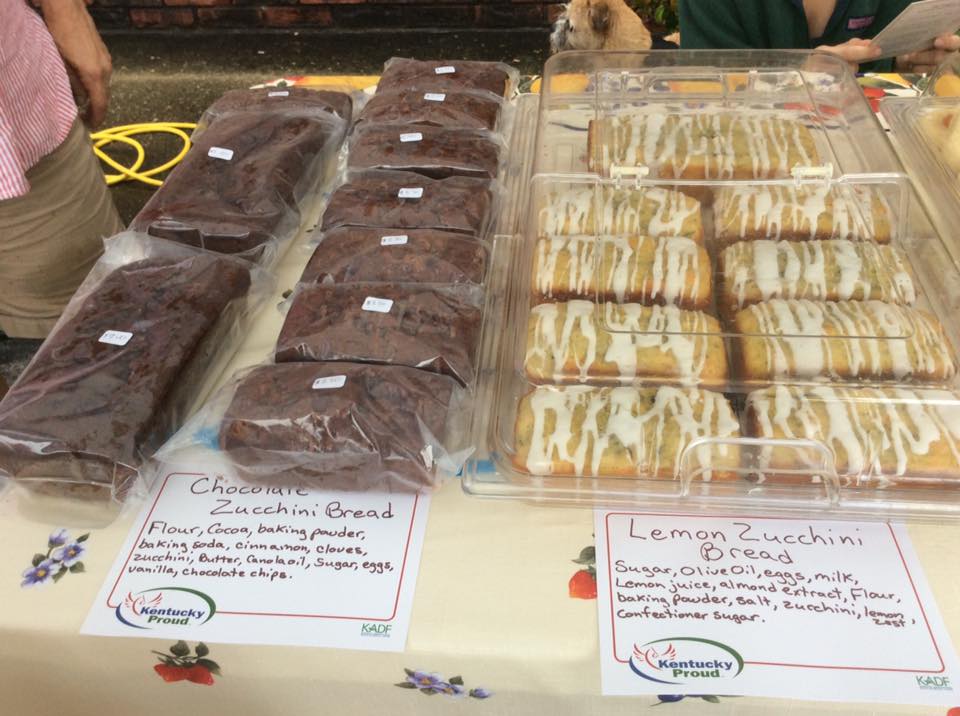 Chocolate
Zucchini Bread
Flour, Cocoa, baking powder,
baking soda, cinnamon, cloves,
zucchini, Butter, Canola oil, Sugar, eggs,
vanilla, chocolate chips.
Kentucky
Proud
KADF
Lemon Zucchini
Bread
Sugar, Olive Oil, eggs, milk,
Lemon juice, almond extract, Flour,
baking powder, salt, zucchini, lemon
zest,
Confectioner sugar.
Kentucky
Proud
KADF